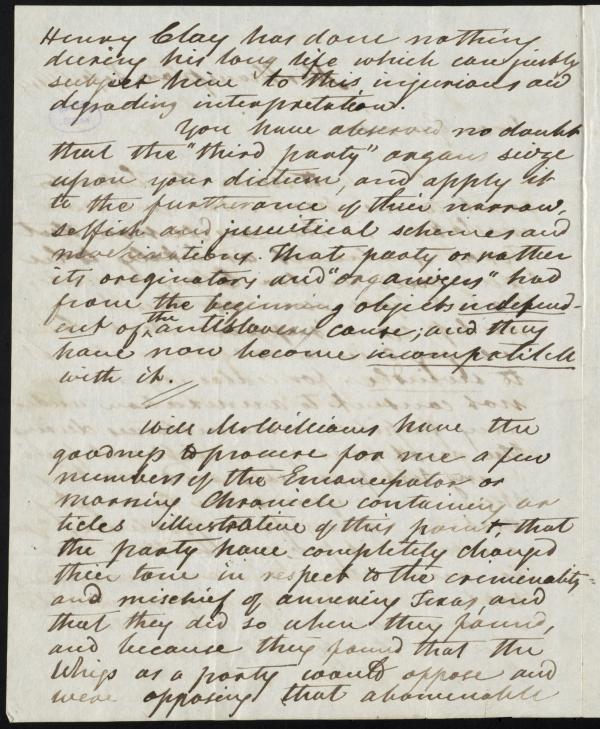 Henry Clay has done nothing
during his long life which can justly
subject him to this injurious and
degrading interpretation.
You have observed no doubt
that the "third party" organs seize
upon your dictum, and apply it
to the furtherance of their narrow,
selfish and jesuitical schemes and
machinations. That party or rather
its originators and "organizers" had
from the beginning objects independ-
ent of the antislavery cause; and they
have now become incompatible
with it.
Will Mr Williams have the
goodness to procure for me a few
numbers of the Emancipator or
morning Chronicle containing ar
ticles illustrative of this point, that
the party have completely changed
their tone in respect to the criminality
and mischief of annexing Texas, and
that they did so when they found,
and because they found that the
Whigs as a party would oppose and
were opposing that abominable